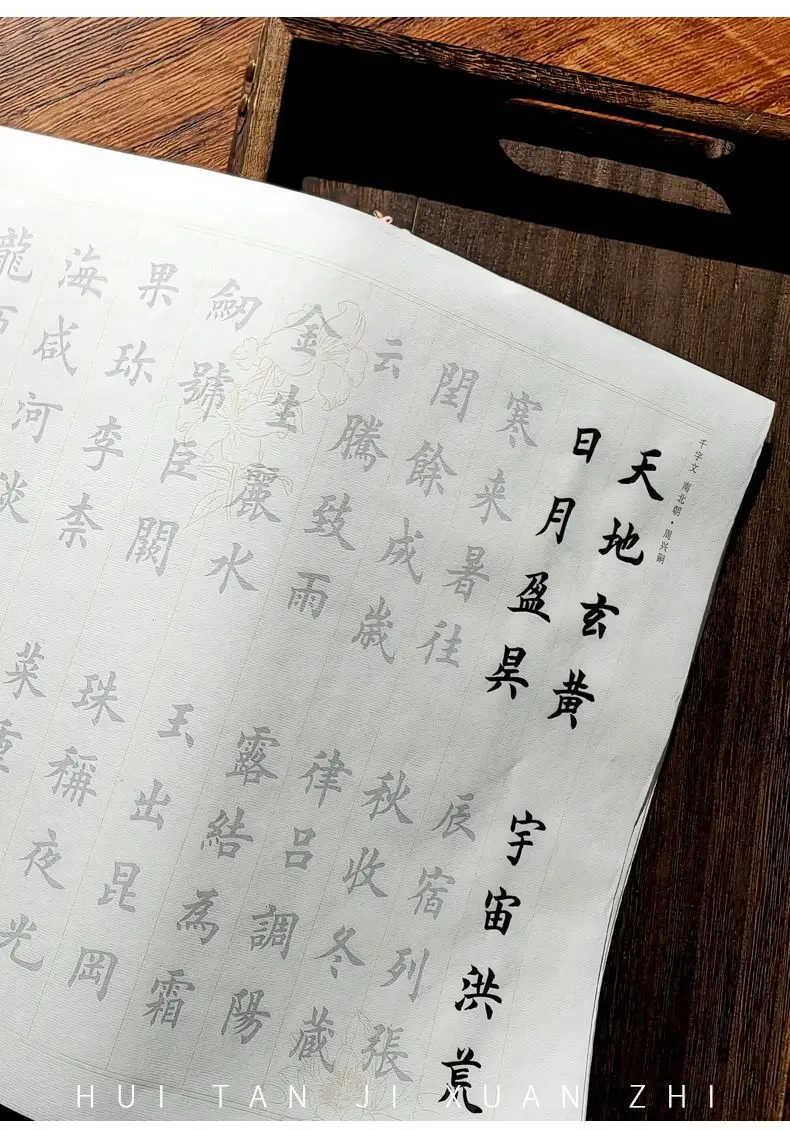 千字文 南北朝·周兴嗣
天地玄黄 宇宙洪荒
日月盈昃 辰宿列張
寒来暑往 秋收冬蔵
閏餘成歳 律呂調陽
云騰致雨 露結為霜
金生麗水 玉出昆岡
劒號巨闕 珠稱夜光
果珎李柰 菜重
海咸河淡
龍
HUI TAN JI XUAN ZHI